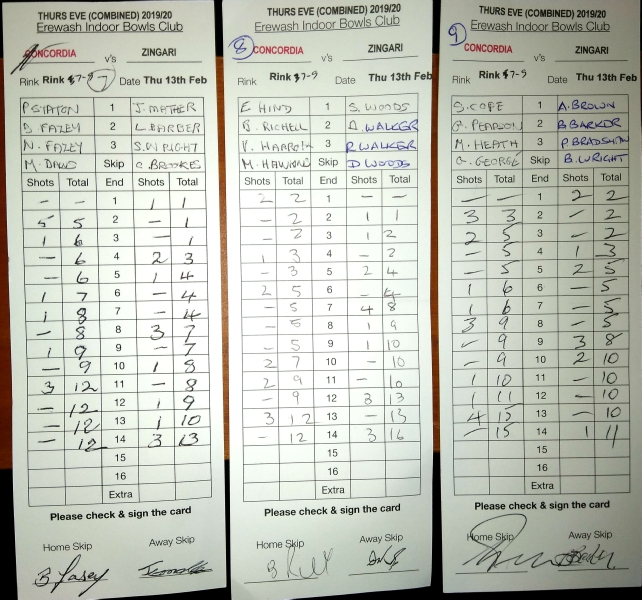 THURS EVE (COMBINED) 2019/20
Erewash Indoor Bowls Club
CONCORDIA v's ZINGARI
Rink Rink 7-9 7 Date Thu 13th Feb
P STATON 1 J. MATHER
D FAZEY 2 L. BARBER
N. FAZEY 3 S. WRIGHT
M. DAVIS Skip C. BROOKES
Shots Total End Shots Total
- - 1 1 1
5 5 2 - 1
1 6 3 - 1
- 6 4 2 3
- 6 5 1 4
1 7 6 - 4
1 8 7 - 4
- 8 8 3 7
1 9 9 - 7
- 9 10 1 8
3 12 11 - 8
- 12 12 1 9
- 12 13 1 10
- 12 14 3 13
15
16
Extra
Please check & sign the card
Home Skip Away Skip
B Fasey
THURS EVE (COMBINED) 2019/20
Erewash Indoor Bowls Club
8 CONCORDIA v's ZINGARI
Rink Rink 7-9 Date Thu 13th Feb
E HIND 1 S. WOODS
B. RICHELL 2 D. WALKER
V. 3 P. WALKER
M. Skip D WOODS
Shots Total End Shots Total
2 2 1 - -
- 2 2 1 1
- 2 3 1 2
1 3 4 - 2
- 3 5 2 4
2 5 6 - 4
- 5 7 4 8
- 5 8 1 9
- 5 9 1 10
2 7 10 - 10
2 9 11 - 10
- 9 12 3 13
3 12 13 - 13
- 12 14 3 16
15
16
Extra
Please check & sign the card
Home Skip Away Skip
THURS EVE (COMBINED) 2019/20
Erewash Indoor Bowls Club
9 CONCORDIA v's ZINGARI
Rink Rink 7-9 Date Thu 13th Feb
S. COPE 1 A. BROWN
G. PEARSON 2 B BARKER
M. HEATH 3 P BRADSHAW
G. GEORGE Skip B. WRIGHT
Shots Total End Shots Total
- - 1 2 2
3 3 2 - 2
2 5 3 - 2
- 5 4 1 3
- 5 5 2 5
1 6 6 - 5
1 6 7 - 5
3 9 8 - 5
- 9 9 3 8
- 9 10 2 10
1 10 11 - 10
1 11 12 - 10
4 15 13 - 10
- 15 14 1 11
15
16
Extra
Please check & sign the card
Home Skip Away Skip